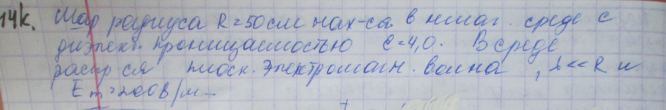 14к. Шар радиуса R=50см нах-ся в немаг. среде с
диэлект. проницаемостью ε=4,0. В среде
распр ся плоск. электромагн. волна, λ<<R и
Em=200В/м